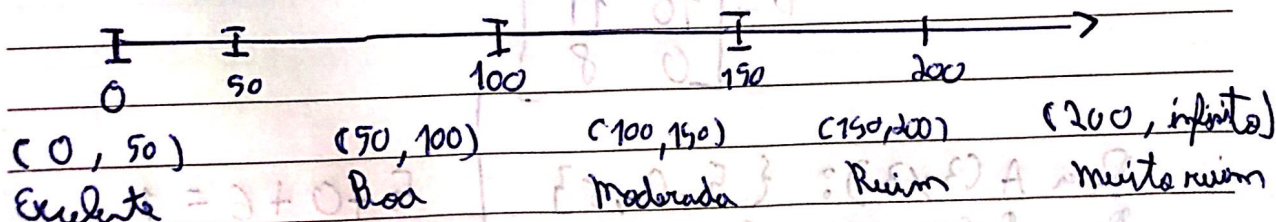 0 50 100 150 200
(0, 50) (50, 100) (100, 150) (150, 200) (200, infinito)
Excelente Boa Moderada Ruim Muito ruim